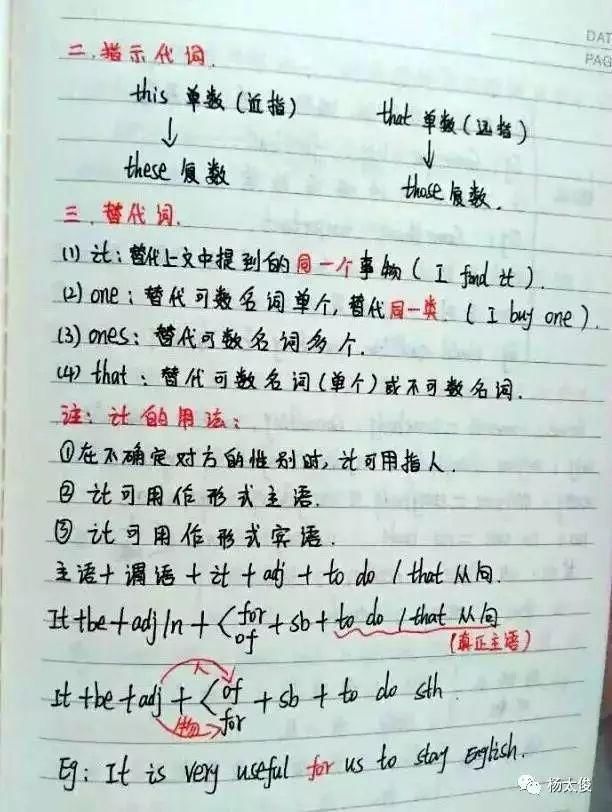 DAT
PAG
二.指示代词.
this 单数(近指)
that 单数(远指)
↓
↓
these 复数
those 复数.
三.替代词.
(1) it:替代上文中提到的同一个事物(I find it).
(2) one:替代可数名词单个,替代同一类.(I buy one).
(3) ones:替代可数名词多个.
(4) that:替代可数名词(单个)或不可数名词.
注:it的用法:
①在不确定对方的性别时,it可用指人.
② it可用作形式主语.
③ it可用作形式宾语.
主语+谓语+it+adj+to do / that 从句.
It+be+adj/n+<for/of+sb+to do / that 从句
(真正主语)
人
It+be+adj+<of/for+sb+to do sth.
物
Eg: It is very useful for us to stay English.
杨太俊